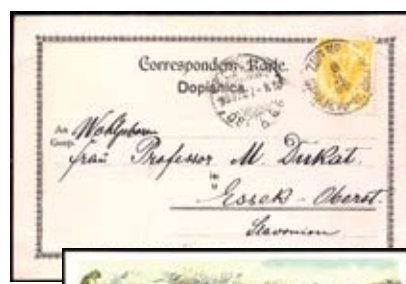 Correspondenz-Karte.
Dopisnica.
An
Wohlgeboren
Gosp.
Frau Professor M. Dukat.
in
u
Essek - Oberst.
Slavonien